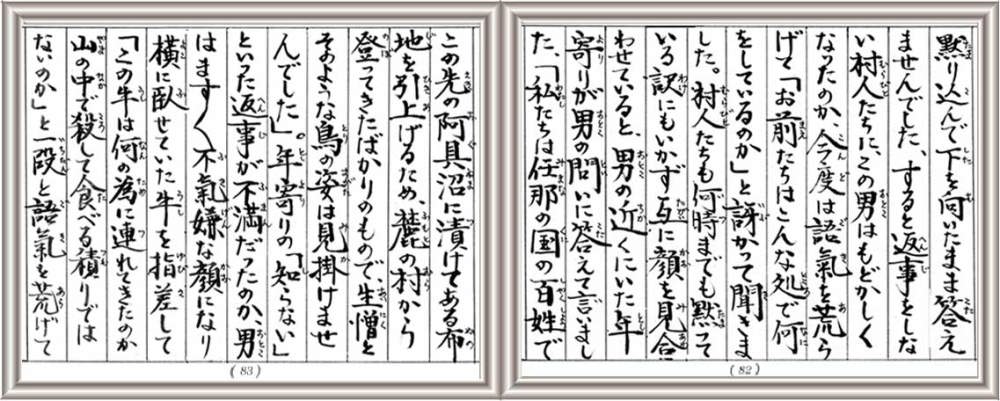 黙り込んで下を向いたまま答え
ませんでした、すると返事をしな
い村人たちに、この男はもどかしく
なったのか、今度は語氣を荒ら
げて「お前たちはこんな処で何
をしているのか」と訝かって聞きま
した。村人たちも何時までも黙って
いる訳にもいかず互に顔を見合
わせていると、男の近くにいた年
寄りが男の問いに答えて言いまし
た、「私たちは任那の国の百姓で
(82)
この先の阿具沼に漬けてある布
地を引上げるため、麓の村から
登ってきたばかりのもので生憎と
そのような鳥の姿は見掛けませ
んでした」。年寄りの「知らない」
といった返事が不満だったのか、男
はます〱不氣嫌な顔になり
横に臥せていた牛を指差して
「この牛は何の為に連れてきたのか
山の中で殺して食べる積りでは
ないのか」と一段と語氣を荒げて
(83)